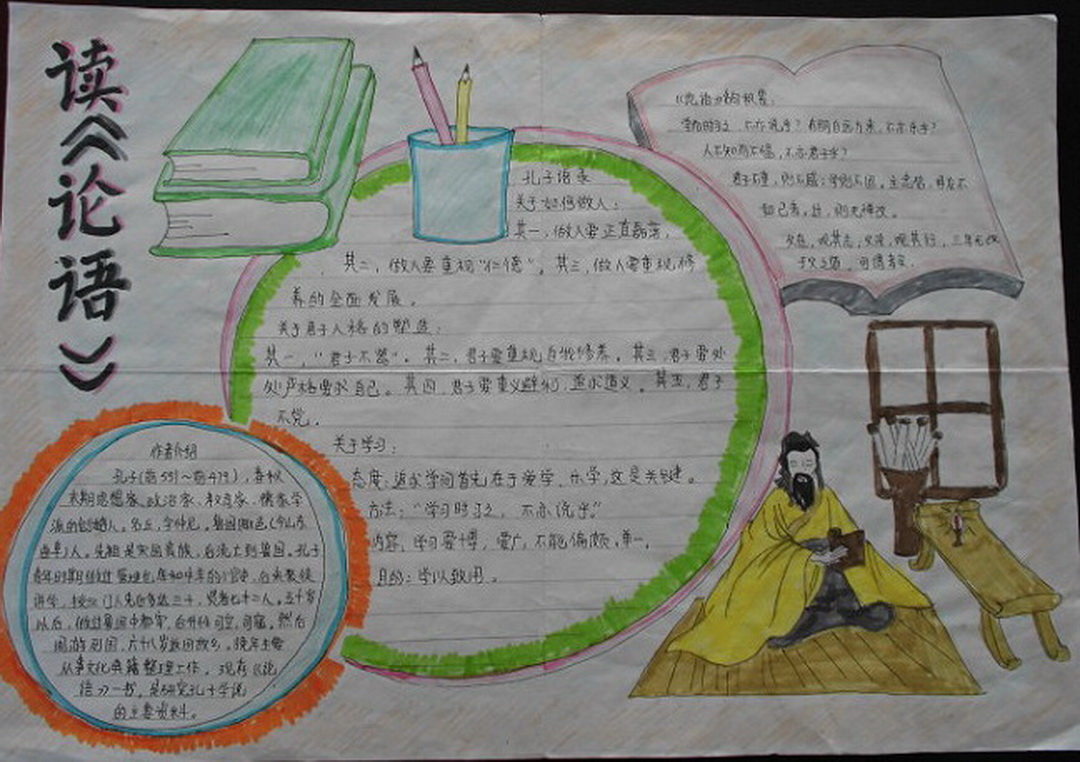 读《论语》
孔子语录
关于如何做人：
其一，做人要正直磊落，
其二，做人要重视“仁德”。其三，做人要重视修
养的全面发展。
关于君子人格的塑造：
其一，“君子不器”。其二，君子要重视自我修养。其三，君子要处
处严格要求自己。其四，君子要重义避利，追求道义。其五，君子
不党。
关于学习：
态度：追求学问首先在于爱学、乐学，这是关键。
方法：“学习时习，不亦说乎。”
内容，学习要博，要广，不能偏颇，单一。
目的：学以致用。
《论语》的积累：
学而时习，不亦说乎？有朋自远方来，不亦乐乎？
人不知而不愠，不亦君子乎？
君子不重，则不威；学则不固。主忠信，毋友不
如己者，过，则无惮改。
父在，观其志，父没，观其行，三年无改
于父之道，可谓孝矣。
作者介绍
孔子(前551～前479)，春秋
末期思想家、政治家、教育家、儒家学
派的创始人。名丘，字仲尼。鲁国陬邑(今山东
曲阜)人。先祖是宋国贵族，后流亡到鲁国。孔子
青年时期做过
讲学，门人先后多达三千，贤者七十二人。五十岁
以后，做过鲁国中都宰，后升任司空、司寇。然后
周游列国，六十八岁返回故乡。晚年主要
从事文化典籍整理工作。现存《论
语》一书，是研究孔子学说
的主要资料。